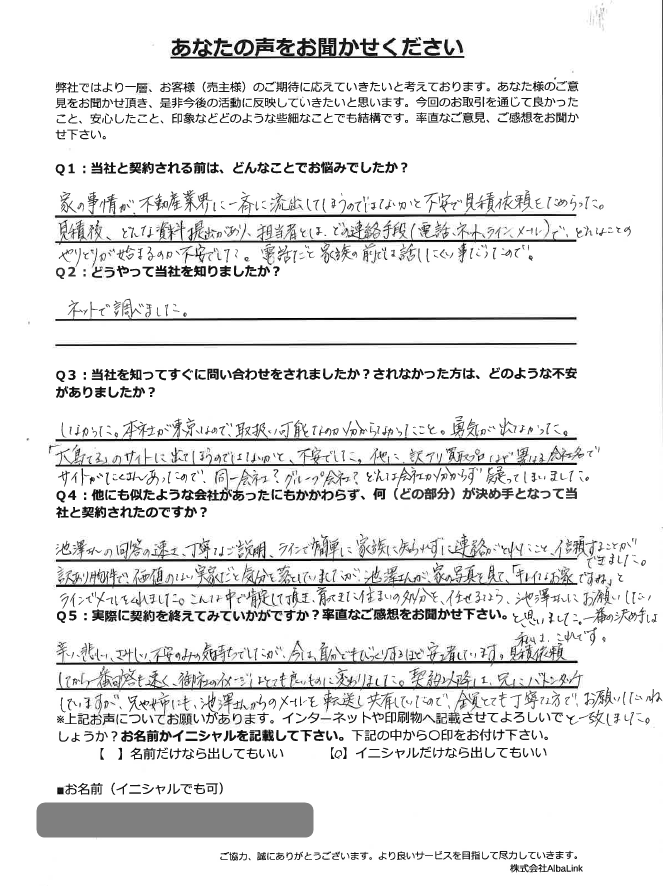 あなたの声をお聞かせください
弊社ではより一層、お客様（売主様）のご期待に応えていきたいと考えております。あなた様のご意
見をお聞かせ頂き、是非今後の活動に反映していきたいと思います。今回のお取引を通じて良かった
こと、安心したこと、印象などどのような些細なことでも結構です。率直なご意見、ご感想をお聞か
せ下さい。
Q1：当社と契約される前は、どんなことでお悩みでしたか？
家の事情が、不動産業界に一斉に流出してしまうのではないかと不安で見積依頼をためらった。
見積後、どんな資料提出があり、担当者とは、どの連絡手段（電話、ネット、ライン、メール）で、どれほどの
やりとりが始まるのか不安でした。電話だと家族の前では話しにくい事だったので。
Q2：どうやって当社を知りましたか？
ネットで調べました。
Q3：当社を知ってすぐに問い合わせをされましたか？されなかった方は、どのような不安
がありましたか？
しなかった。本社が東京なので、取扱い可能なのか分からなかったこと。勇気が出なかった。
「大島てる」のサイトに出てしまうのではないかと、不安でした。他に、訳アリ買取プロなど異なる会社名で
サイトがたくさんあったので、同一会社？グループ会社？どんな会社か分からず疑ってしまいました。
Q4：他にも似たような会社があったにもかかわらず、何（どの部分）が決め手となって当
社と契約されたのですか？
池澤さんの回答の速さ、丁寧なご説明、ラインで簡単に家族に知らせずに連絡がとれたこと、信頼することが
できました。
訳あり物件で、価値のない実家だと気分を落としていましたが、池澤さんが、家の写真を見て、「キレイなお家
ですね」と
ラインでメールをくれました。こんな中で 頂き、育てきた住まいの処分を、任せるなら、池澤さんにお願いしたい
と思いました。一番の決め手は
私は、これです。
Q5：実際に契約を終えてみていかがですか？率直なご感想をお聞かせ下さい。
辛い、悲しい、さみしい、不安のみの気持ちでしたが、今は、自分でもびっくりするほど安心しています。見積依頼
してから一番回答も速く、御社のイメージはとても良いものに変わりました。契約以降は、兄にバトンタッチ
していますが、兄や姉にも、池澤さんからのメールを転送し共有していたので、全員とても丁寧な方で、お願いしたいね
と一致しました。
※上記お声についてお願いがあります。インターネットや印刷物へ記載させてよろしいで
しょうか？お名前かイニシャルを記載して下さい。下記の中から〇印をお付け下さい。
【　】名前だけなら出してもいい　【○】イニシャルだけなら出してもいい
■お名前（イニシャルでも可）
ご協力、誠にありがとうございます。より良いサービスを目指して尽力していきます。
株式会社AlbaLink